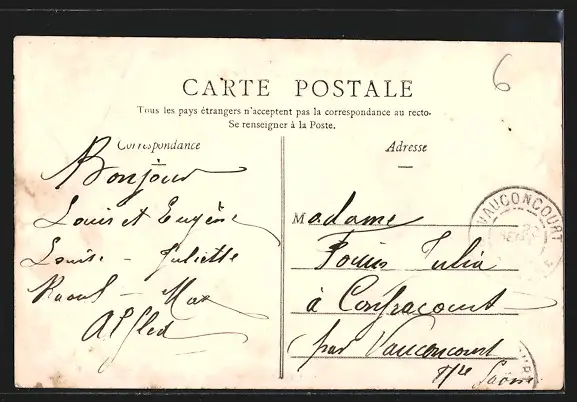 6
CARTE POSTALE
Tous les pays étrangers n'acceptent pas la correspondance au recto-
Se renseigner à la Poste.
Correspondance
Adresse
Bonjour
Louis et Eugène
Louise - Juliette
Raoul - Max
Alfled
Madame
Julia
à Confracourt
par Vauconcourt
Hte Saône
VAUCONCOURT